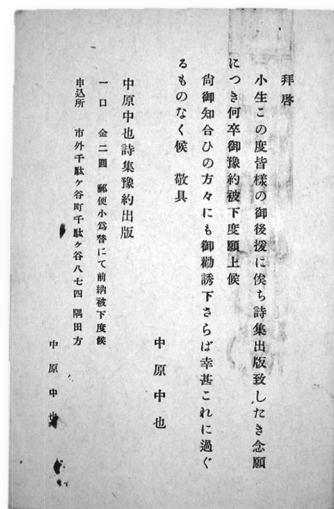 拜啓
小生この度皆樣の御後援に俟ち詩集出版致したき念願
につき何卒御豫約被下度願上候
尙御知合ひの方々にも御勸誘下さらば幸甚これに過ぐ
るものなく候　敬具
中原中也
中原中也詩集豫約出版
一口　金二圓　郵便小爲替にて前納被下度候
申込所　市外千駄ケ谷町千駄ケ谷八七四　隅田方
中原中也